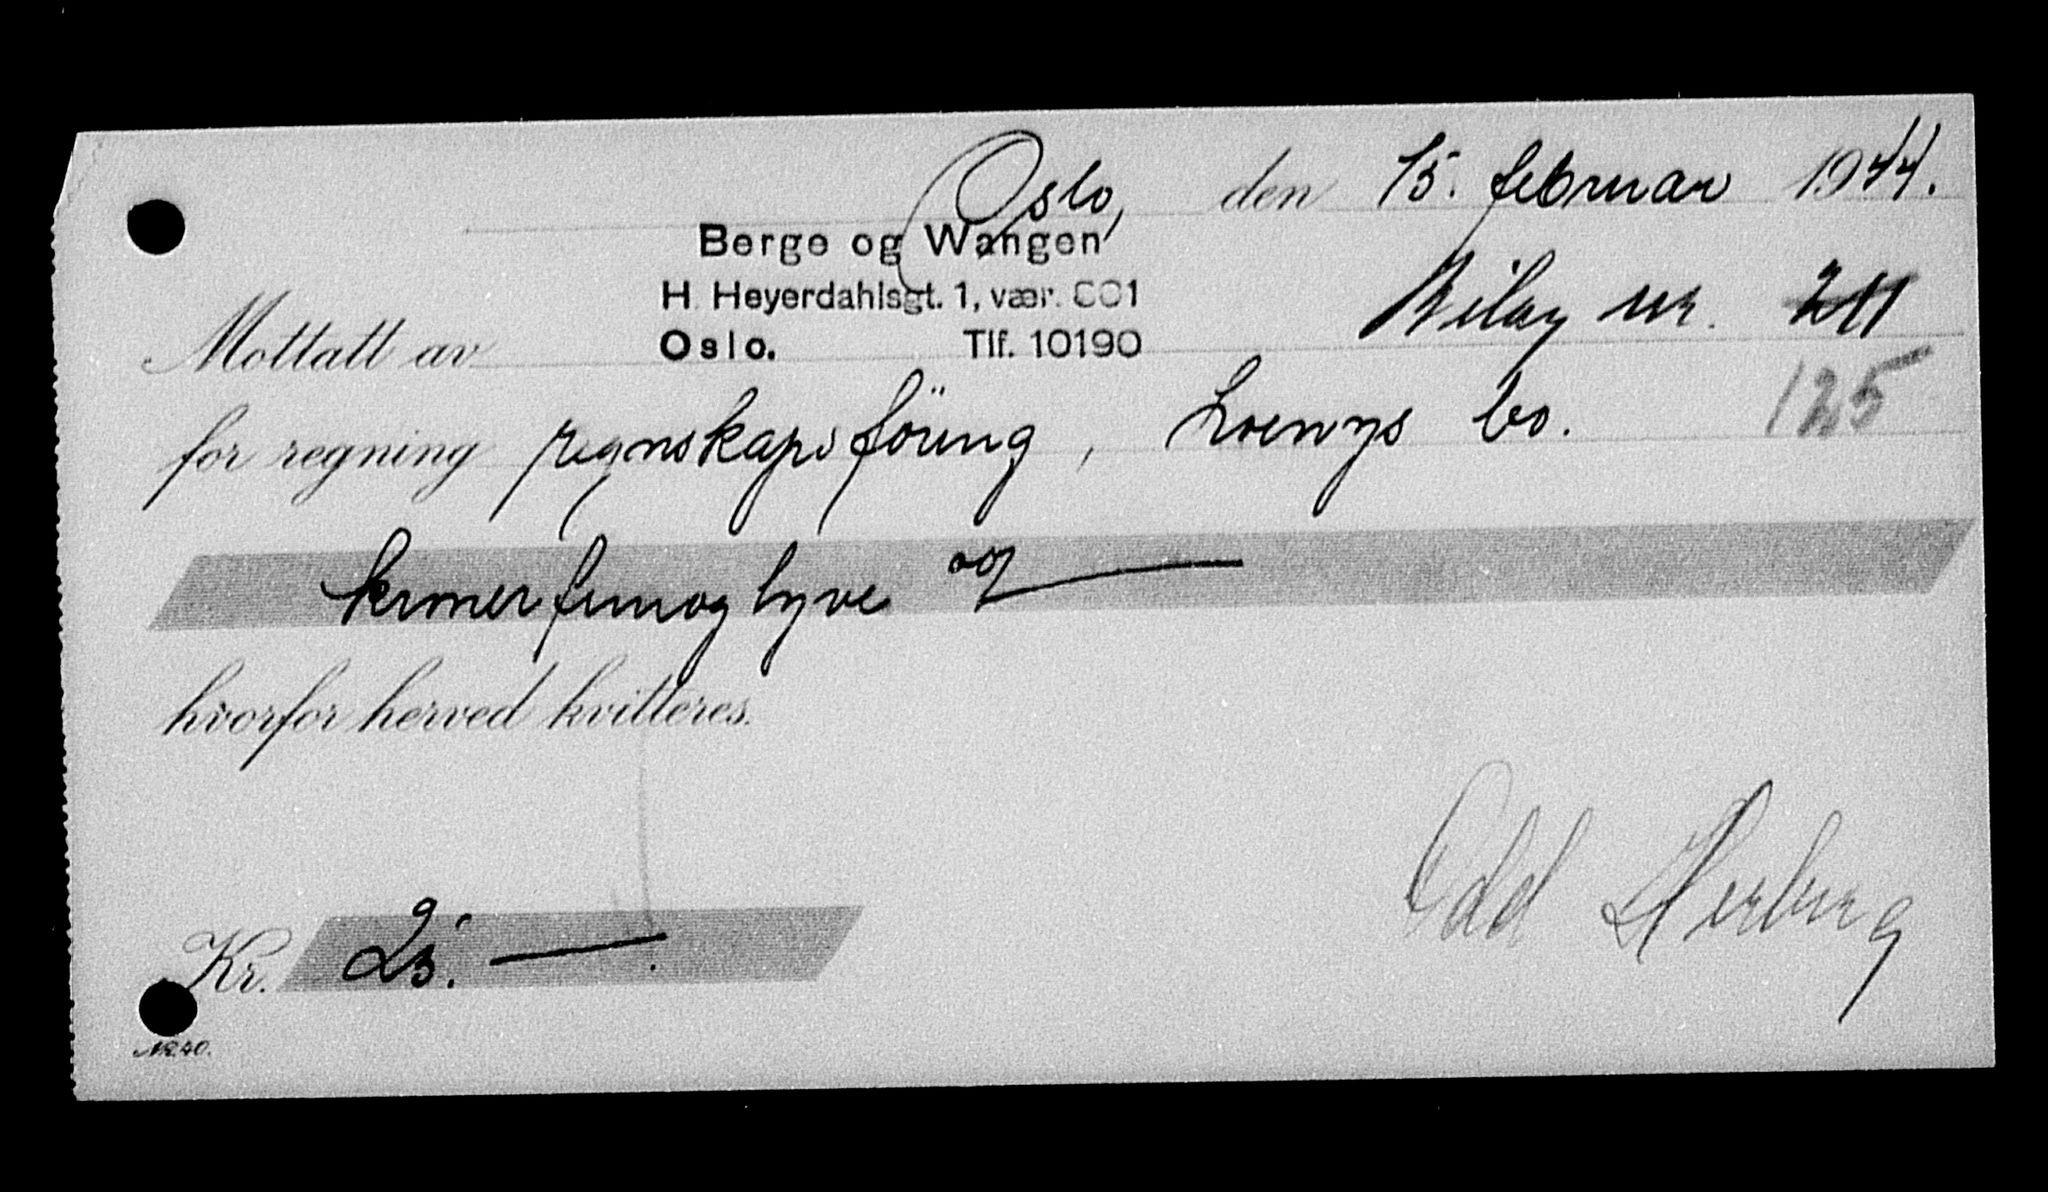 Oslo, den 15. februar 1944.
Berge og Wangen
H. Heyerdahlsgt. 1, vær. 601
Oslo. Tlf. 10190
Bilag nr. 211
Mottatt av
125
for regning regnskapsföring, bo.
kroner femogtyve og
hvorfor herved kvitteres.
Odd
Kr. 25. —
Nr. 40.